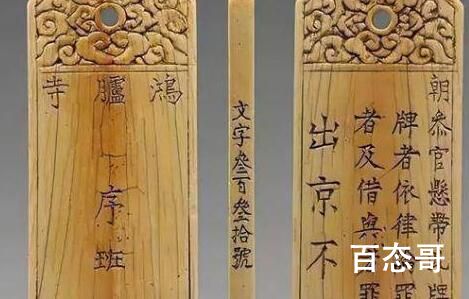 鴻臚寺
序班
文字叁百叁拾號
朝叅官懸帶牌
牌者依律罪
者及借與罪
出京不
百态哥